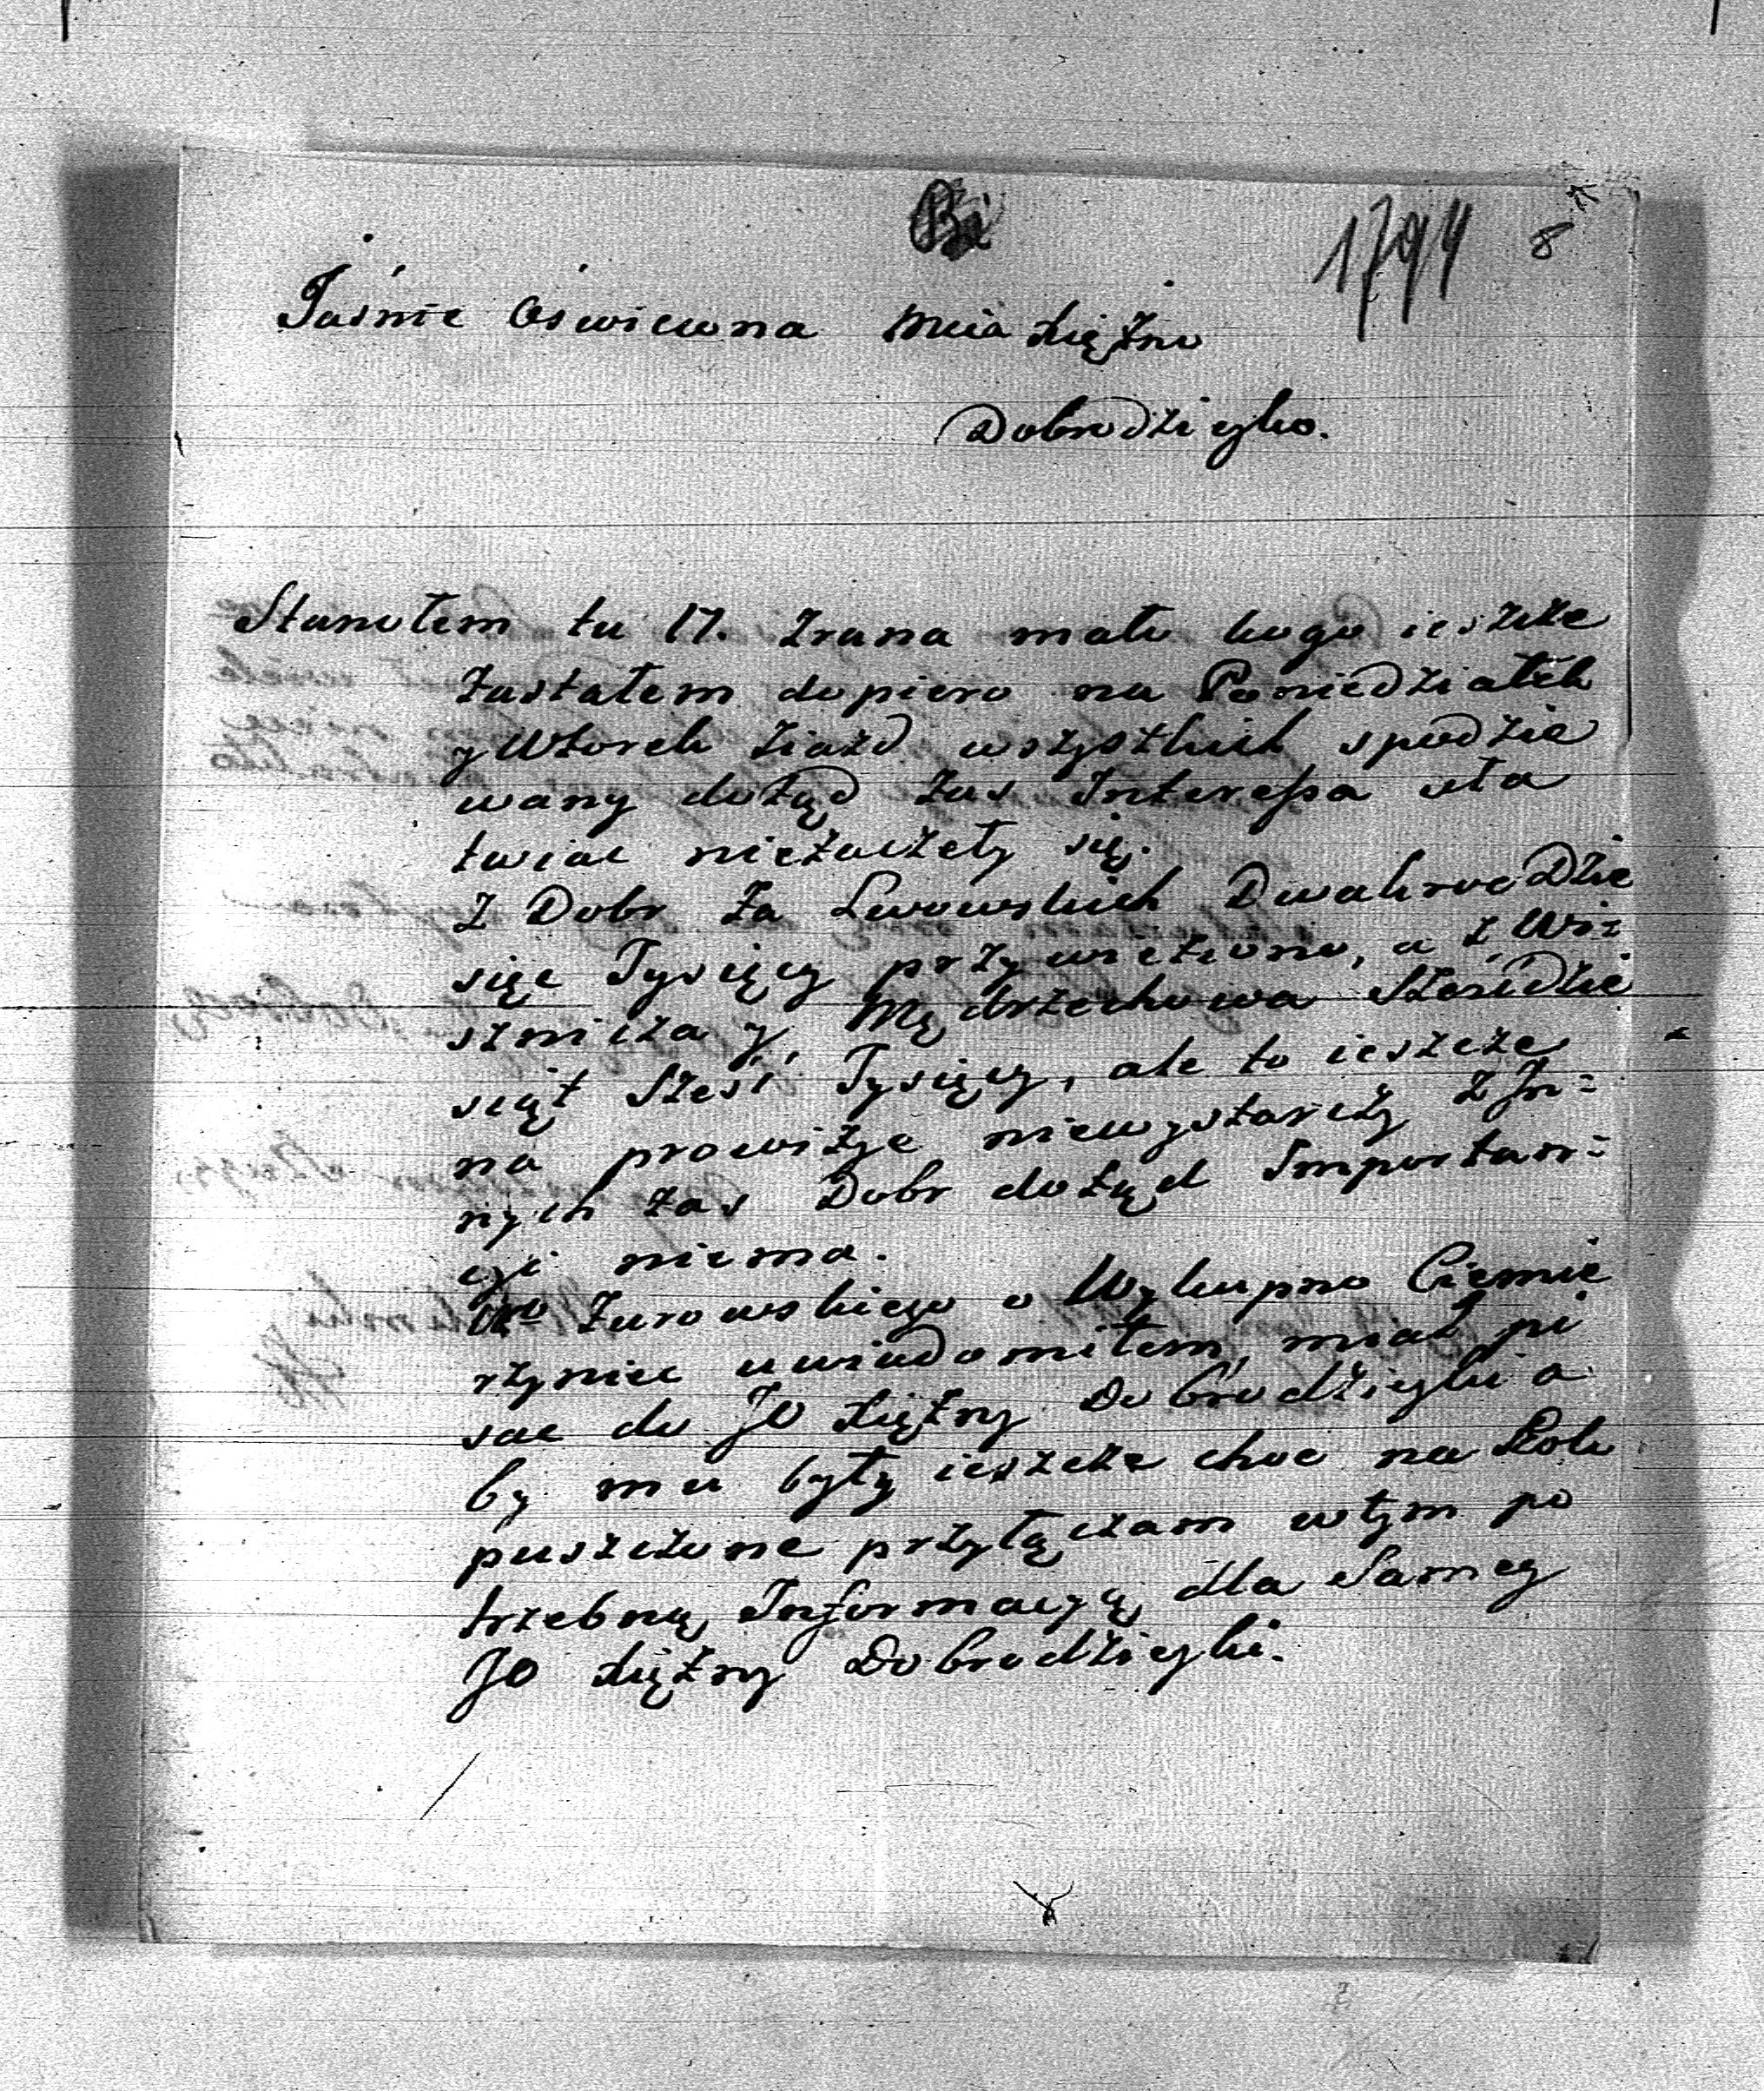 1794 8
Jaśnie Oswiecona Mcia Xiężno
Dobrodzieyko.
Stanołem tu 17. zrana mało kogo ieszcze
zastałem dopiero na Poniedziałek
y Wtorek ziazd wszystkich spodzie
wany dotąd zas Interessa uła
twiac niezaczeły się.
Z Dobr za Lwowskich Dwakroc Dzie
sięc Tysięcy przywieziono, a z Wi=
sznicza y Mędrzechowa Szesdzie
siąt Sześć Tysięcy, ale to ieszcze
na prowizye niewystarczy z In=
nych zas Dobr dotąd Importan=
cyi niema.
Żurowskiego o Wykupno Ciemie
rzyniec uwiadomiłem, miał pi
sac do JO Xiężny Dobrodzieyki a
by mu były ieszcze choc na Rok
puszczone przyłączam w tym po
trzebną Informacyą dla Samey
JO Xiężny Dobrodzieyki.